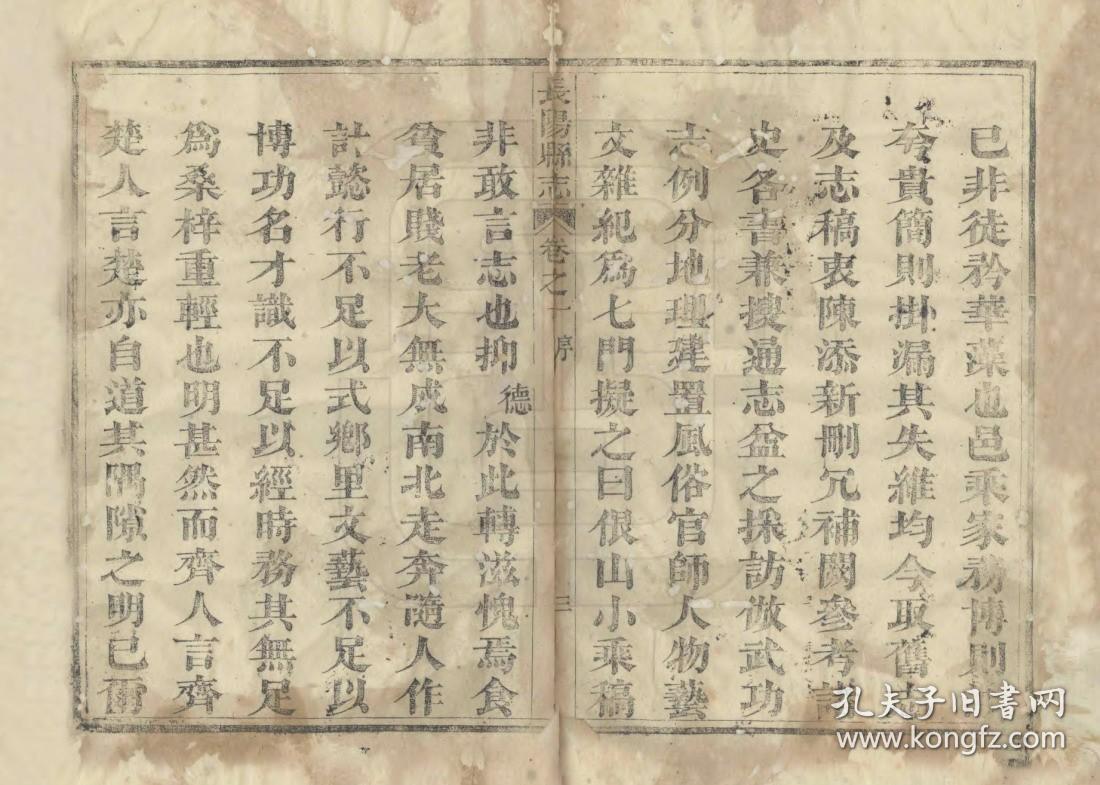 已非徒矜華藻也邑乘家務博則
夸貴簡則掛漏其失維均今取舊志
及志稿裒陳添新刪冗補闕參考諸
史各書兼搜通志益之採訪倣武功
志例分地理建置風俗官師人物藝
文雜紀爲七門擬之曰佷山小乘稿
長陽縣志 卷之一 序 三
非敢言志也抑德於此轉滋愧焉食
貧居賤老大無成南北走奔隨人作
計懿行不足以式鄉里文藝不足以
博功名才識不足以經時務其無足
爲桑梓重輕也明甚然而齊人言齊
楚人言楚亦自道其隅隙之明已爾
孔夫子旧书网
www.kongfz.com